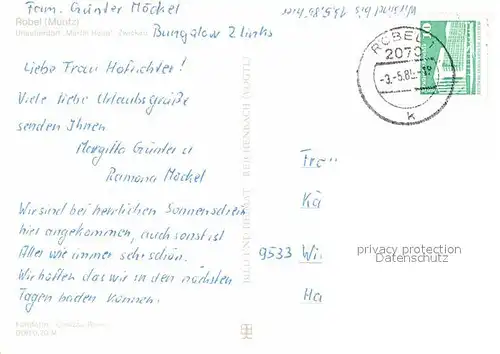 Fam. Günter Möckel
Bungalow 2 links
Röbel (Müritz)
Wir sind bis 13.5.85 hier
Liebe Frau Hofrichter!
Viele liebe Urlaubsgrüße
senden Ihnen
Margitta Günter u
Ramona Möckel
Wir sind bei herrlichen Sonnenschein
hier angekommen, auch sonst ist
Alles wie immer sehr schön.
Wir hoffen das wir in den nächsten
Tagen baden können.
BILD UND HEIMAT REICHENBACH (VOGTL)
RÖBEL 1
2070
-3.-5.85
k
10
Frau
Kä
9533 Wi
Ha
privacy protection
Datenschutz